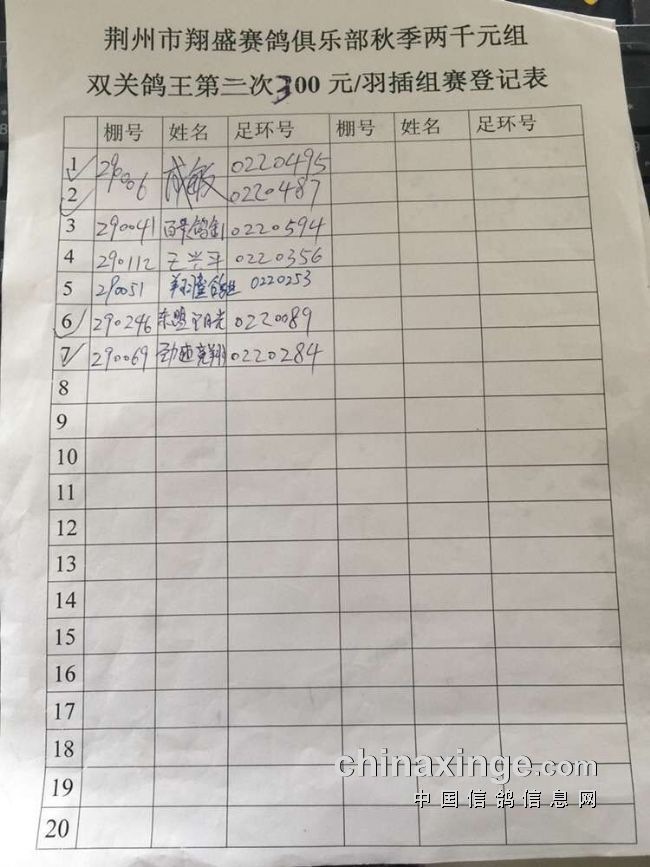 荆州市翔盛赛鸽俱乐部秋季两千元组
双关鸽王第二次300元/羽插组赛登记表
棚号 姓名 足环号 棚号 姓名 足环号
1 290006 成敏 0220495
2 0220487
3 290041 0220594
4 290112 王兴平 0220356
5 290051 0220253
6 290246 东盟 月光 0220089
7 290069 竞翔 0220284
8
9
10
11
12
13
14
15
16
17
18
19
20
chinaxinge.com
中国信鸽信息网